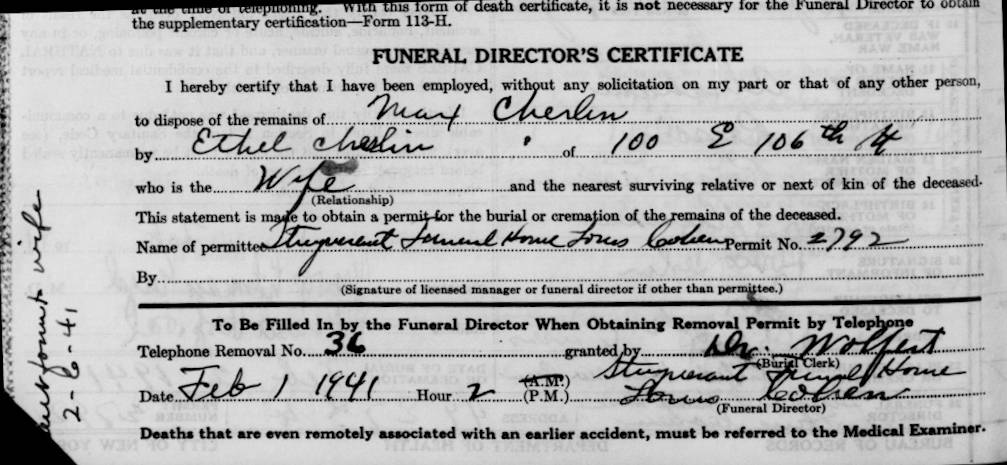 at the time of telephoning. With this form of death certificate, it is not necessary for the Funeral Director to obtain
the supplementary certification—Form 113-H.
FUNERAL DIRECTOR'S CERTIFICATE
I hereby certify that I have been employed, without any solicitation on my part or that of any other person,
to dispose of the remains of Max Cherlin
by Ethel Cherlin of 100 E 106th St
who is the Wife and the nearest surviving relative or next of kin of the deceased.
(Relationship)
This statement is made to obtain a permit for the burial or cremation of the remains of the deceased.
Name of permittee Stuyvesant Funeral Home Louis Cohen Permit No. 2792
By
(Signature of licensed manager or funeral director if other than permittee.)
To Be Filled In by the Funeral Director When Obtaining Removal Permit by Telephone
Telephone Removal No. 36 granted by Dr. Wolfert
(Burial Clerk)
Stuyvesant Funeral Home
Date Feb 1 1941 Hour 2 (A.M.) (P.M.) Louis Cohen
(Funeral Director)
Deaths that are even remotely associated with an earlier accident, must be referred to the Medical Examiner.
to wife
2-6-41